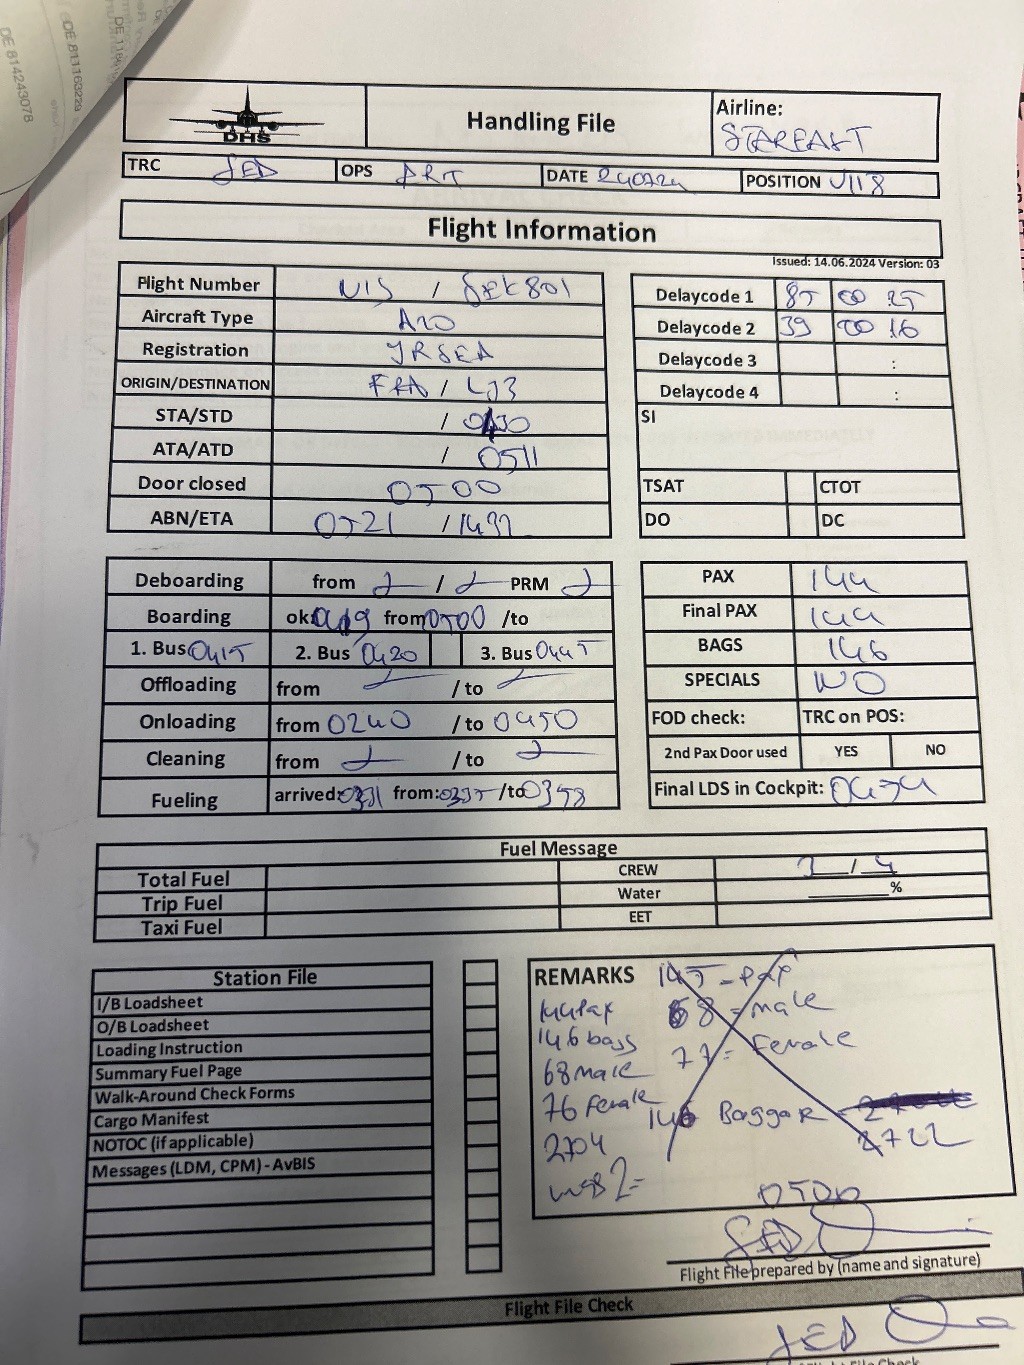 DE 814243078
DE 811163229
DHS
Handling File
Airline:
STAREAST
TRC SED
OPS ART
DATE 240724
POSITION V118
Flight Information
Issued: 14.06.2024 Version: 03
Flight Number VIS / SEK801
Aircraft Type A20
Registration YRSEA
ORIGIN/DESTINATION FRA / LJ3
STA/STD / 0430
ATA/ATD / 0511
Door closed 0500
ABN/ETA 0521 /
Delaycode 1 85 00 25
Delaycode 2 39 00 16
Delaycode 3 :
Delaycode 4 :
SI
TSAT CTOT
DO DC
Deboarding from / PRM
Boarding ok: from 0500 /to
1. Bus 0415 2. Bus 0420 3. Bus 0445
Offloading from /to
Onloading from 0240 /to 0450
Cleaning from /to
Fueling arrived: 0331 from: 0335 /to 0358
PAX 144
Final PAX 144
BAGS 146
SPECIALS NO
FOD check: TRC on POS:
2nd Pax Door used YES NO
Final LDS in Cockpit:
Fuel Message
Total Fuel CREW / 4
Trip Fuel Water %
Taxi Fuel EET
Station File
I/B Loadsheet
O/B Loadsheet
Loading Instruction
Summary Fuel Page
Walk-Around Check Forms
Cargo Manifest
NOTOC (if applicable)
Messages (LDM, CPM) - AvBIS
REMARKS 145 - Pax
68 = male
77 = Female
146 Baggar
2722
144 Pax
146 bags
68 male
76 female
2704
0500
SED
Flight File prepared by (name and signature)
Flight File Check
SED